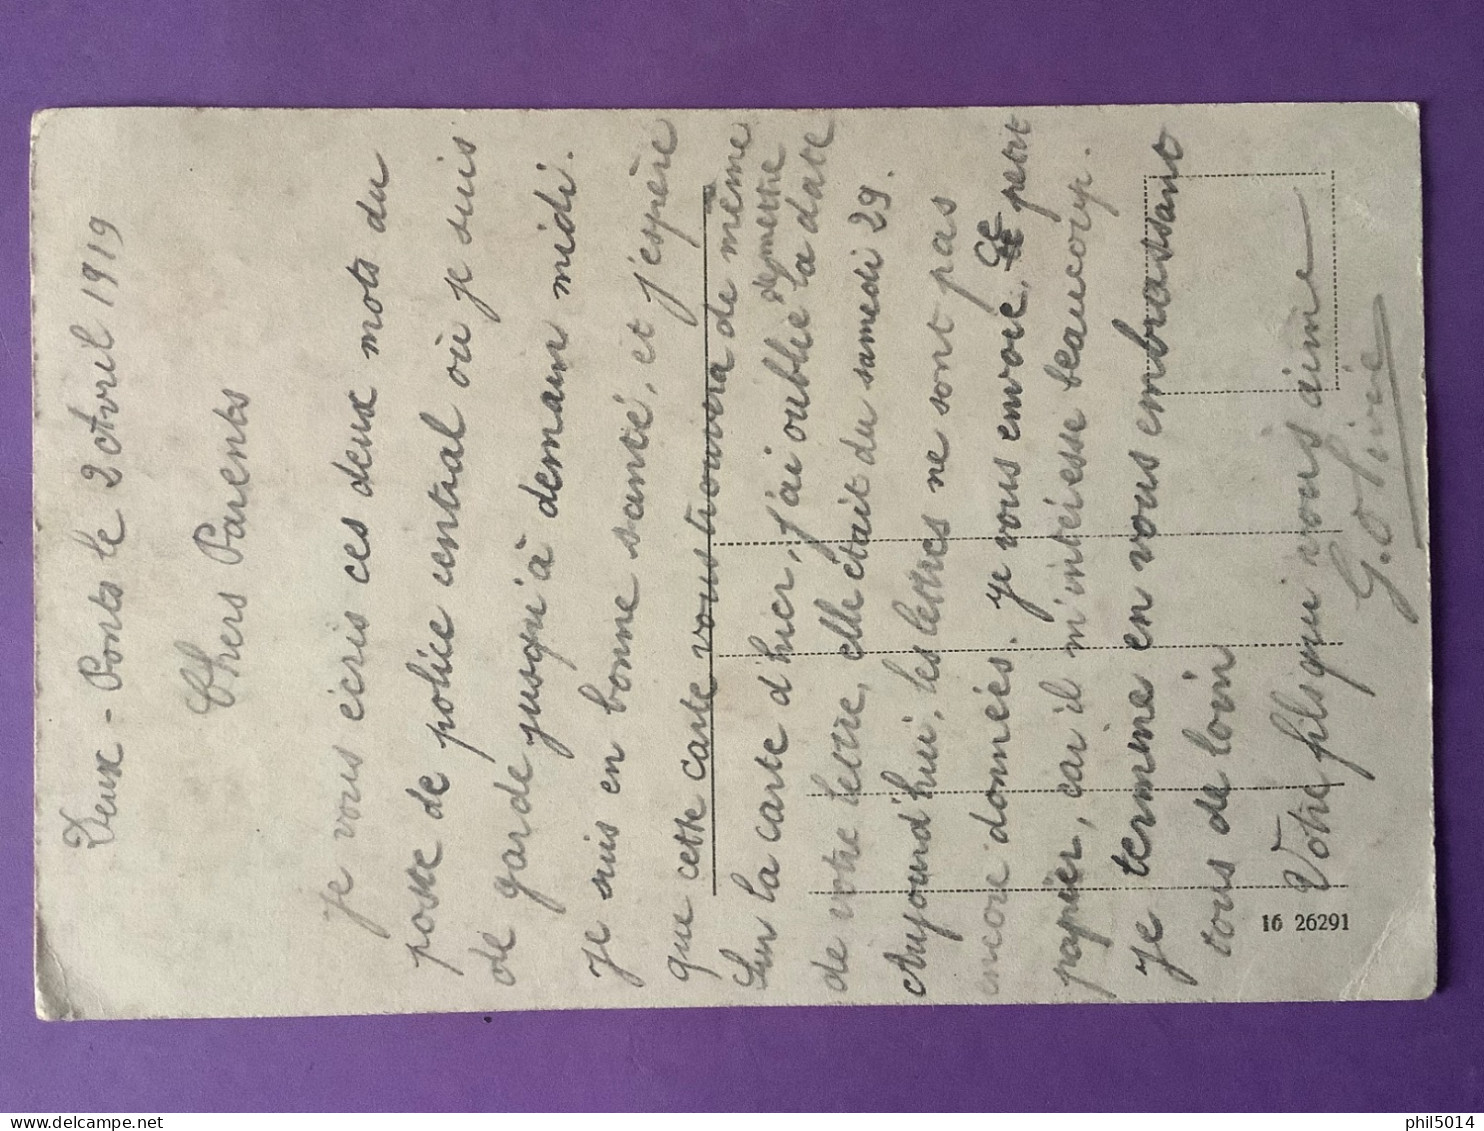 Deux-Ponts le 2 Avril 1919
Chers Parents
Je vous écris ces deux mots du
poste de police central où je suis
de garde jusqu'à demain midi.
Je suis en bonne santé, et j'espère
que cette carte vous trouvera de même
Sur la carte d'hier, j'ai oublié de mettre la date
de votre lettre, elle était du samedi 29.
Aujourd'hui, les lettres ne sont pas
encore données. Je vous envoie, ce petit
papier, car il m'intéresse beaucoup.
Je termine en vous embrassant
tous de loin
Votre fils qui vous aime
16 26291
phil5014